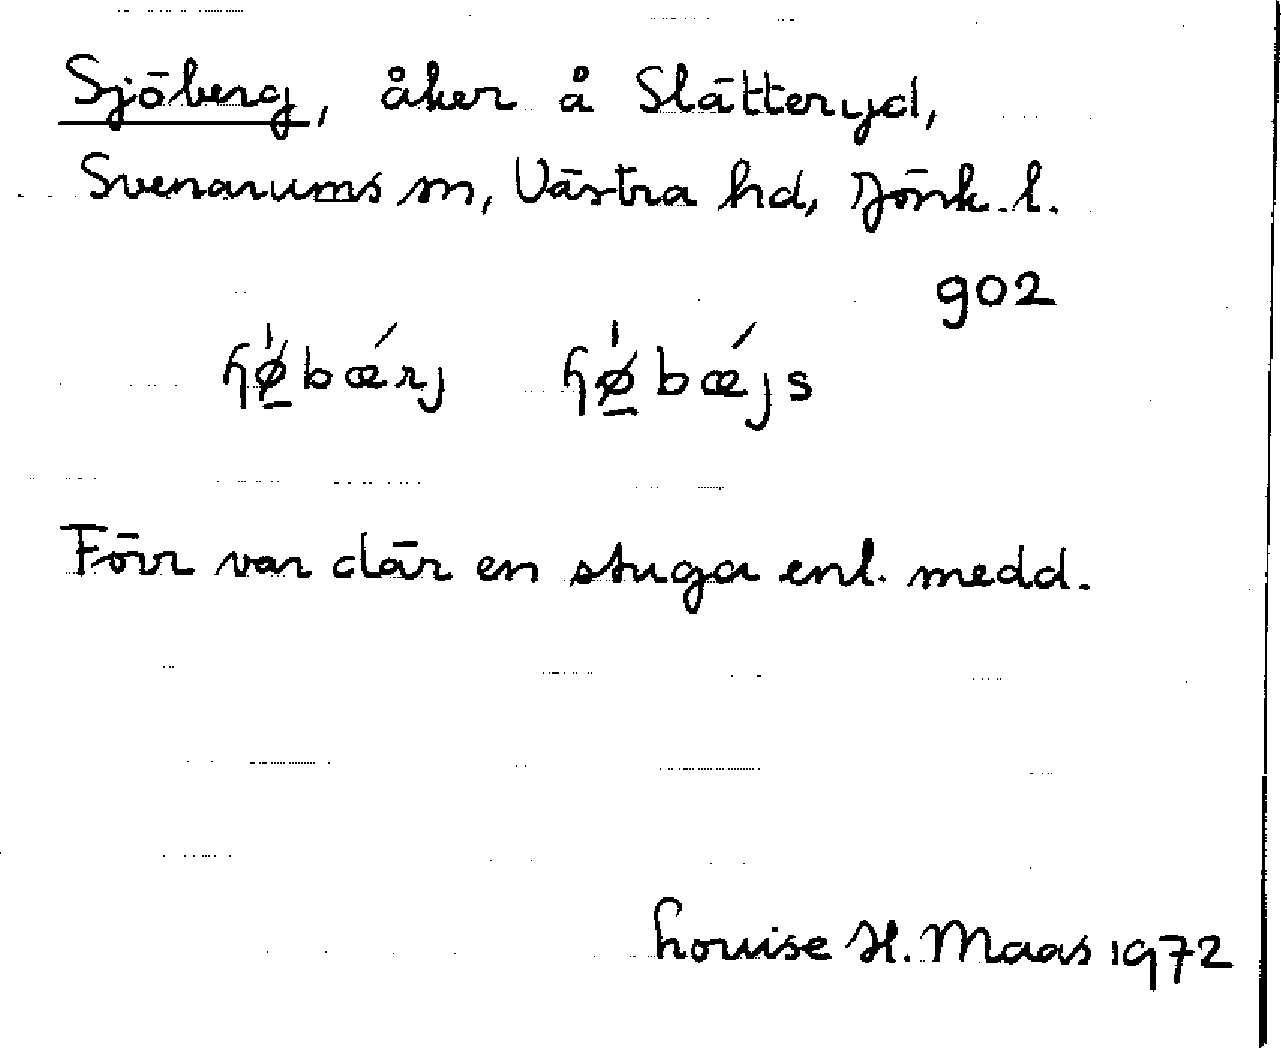 Sjöberg, åker å Slätteryd,
Svenarums sn, Västra hd, Jönk. l.
902
ɧǿ̲bǽrj ɧǿ̲bǽjs
Förr var där en stuga enl. medd.
Louise H. Maas 1972